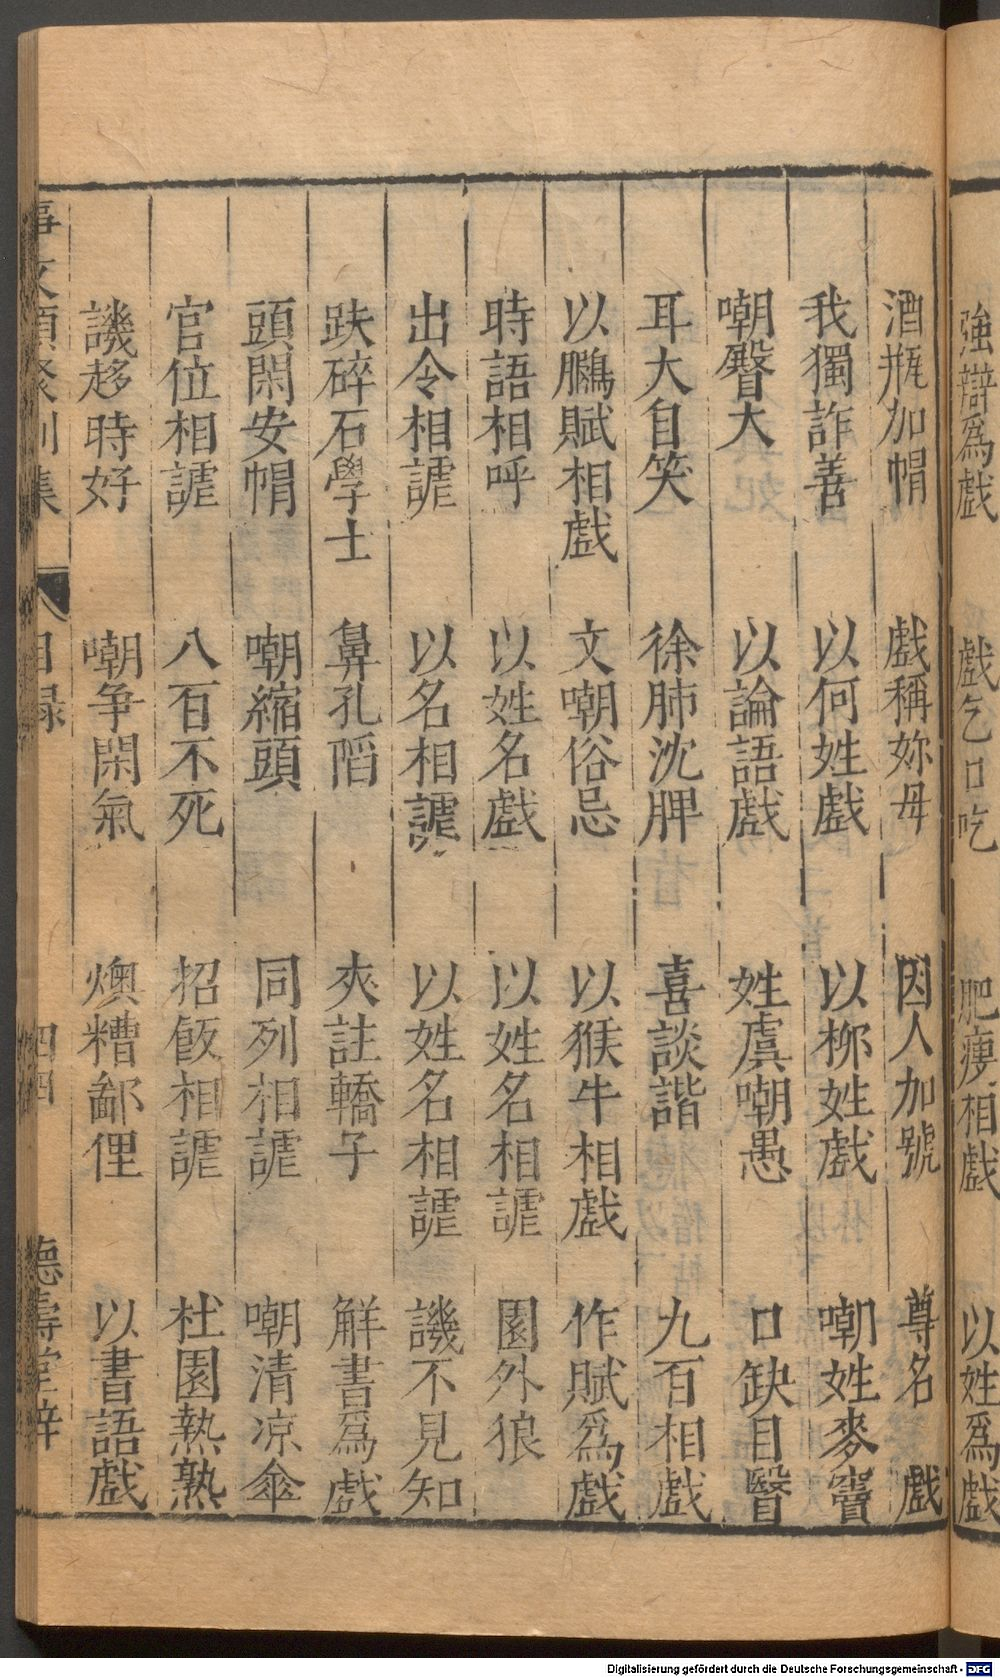 強辯為戲 戲乞口吃 肥瘦相戲 以姓為戲
酒瓶加帽 戲稱妳母 因人加號 尊名戲
我獨詐善 以何姓戲 以柳姓戲 嘲姓麥竇
嘲臀大 以論語戲 姓虞嘲愚 口缺目瞖
耳大自笑 徐肺沈脾 喜談諧 九百相戲
以鵩賦相戲 文嘲俗忌 以猴牛相戲 作賦爲戲
時語相呼 以姓名戲 以姓名相謔 園外狼
出令相謔 以名相謔 以姓名相謔 譏不見知
趺碎石學士 鼻孔䧟 夾註轎子 解書爲戲
頭閑安帽 嘲縮頭 同列相謔 嘲清凉傘
官位相謔 八百不死 招飯相謔 杜園熱熟
譏趍時好 嘲爭閑氣 燠糟鄙俚 以書語戲
事文類聚別集 目録 四四 德壽堂梓
Digitalisierung gefördert durch die Deutsche Forschungsgemeinschaft - DFG